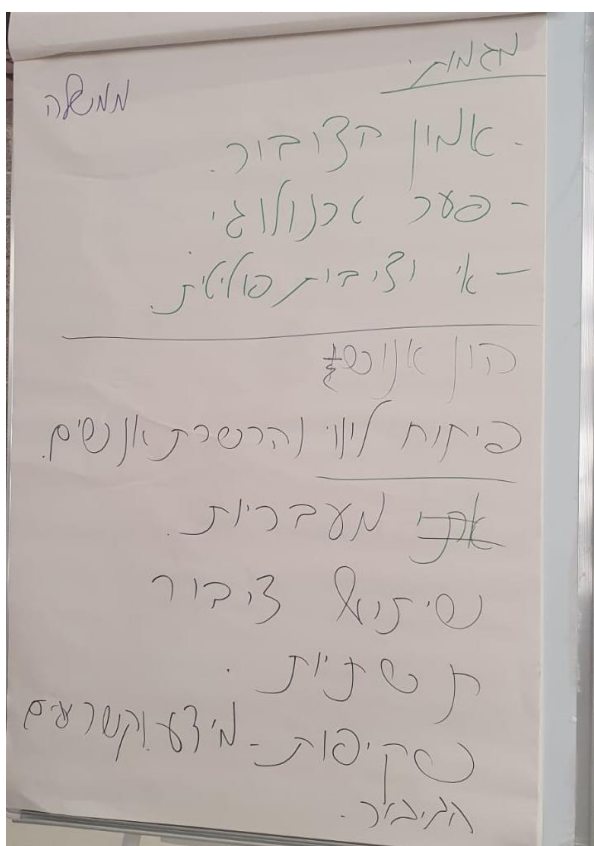 מגמות:
ממשלה
- אמון הציבור.
- פער טכנולוגי
- אי יציבות פוליטית.
הון אנושי
פיתוח ליווי והכשרת אנשים.
מעבריות.
שיתוף ציבור
תשתיות.
שקיפות - מידע וקשר עם
הציבור.